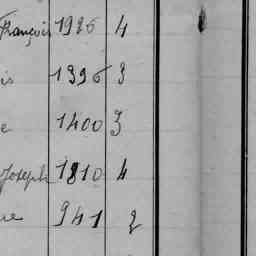 François 1926 4
is 1396 3
e 1400 3
Joseph 1810 4
ue 941 2